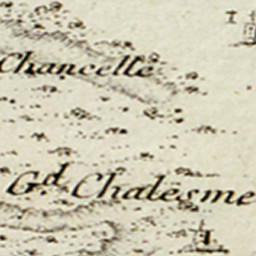 Chancelle
Gd. Chalesme